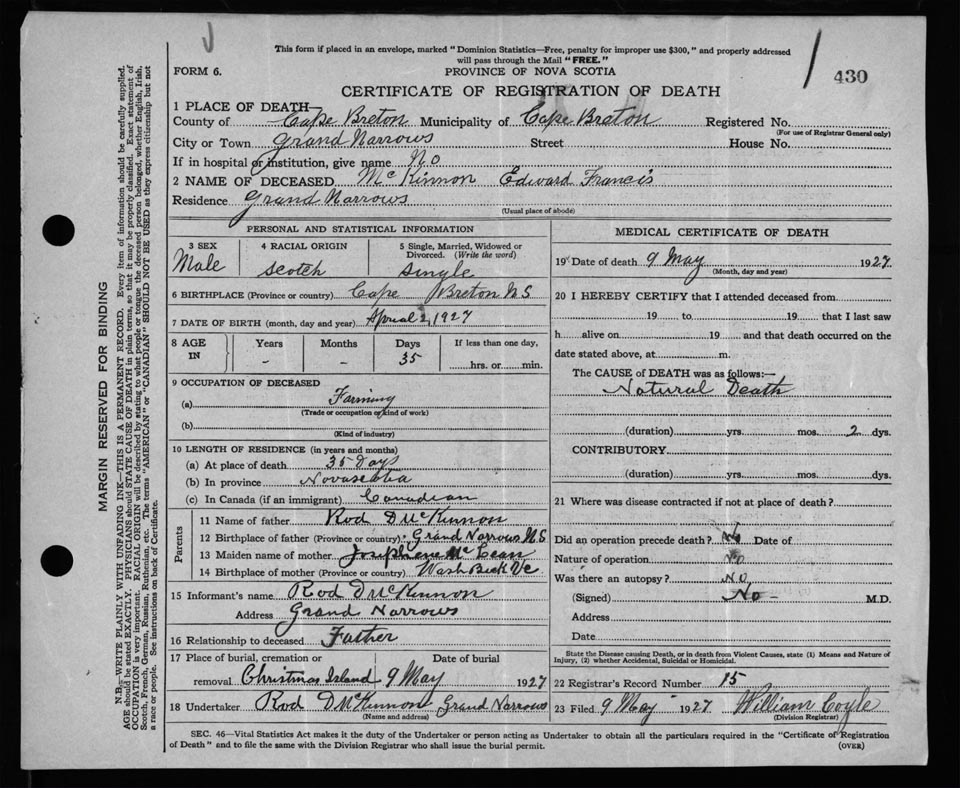 This form if placed in an envelope, marked "Dominion Statistics—Free, penalty for improper use $300," and properly addressed
will pass through the Mail "FREE."
FORM 6.
PROVINCE OF NOVA SCOTIA
430
CERTIFICATE OF REGISTRATION OF DEATH
1 PLACE OF DEATH—
County of Cape Breton Municipality of Cape Breton Registered No.
(For use of Registrar General only)
City or Town Grand Narrows Street House No.
If in hospital or institution, give name No
2 NAME OF DECEASED McKinnon Edward Francis
Residence Grand Narrows
(Usual place of abode)
PERSONAL AND STATISTICAL INFORMATION
3 SEX 4 RACIAL ORIGIN 5 Single, Married, Widowed or
Divorced. (Write the word)
Male Scotch Single
6 BIRTHPLACE (Province or country) Cape Breton N.S
7 DATE OF BIRTH (month, day and year) Apriial 2, 1927
8 AGE IN Years Months Days If less than one day,
- - 35 hrs. or min.
9 OCCUPATION OF DECEASED
(a) Farming
(Trade or occupation or kind of work)
(b)
(Kind of industry)
10 LENGTH OF RESIDENCE (in years and months)
(a) At place of death 35 Days
(b) In province Novascotia
(c) In Canada (if an immigrant) Canadian
Parents
11 Name of father Rod D McKinnon
12 Birthplace of father (Province or country) Grand Narrows N.S
13 Maiden name of mother Josephene McLean
14 Birthplace of mother (Province or country) Wash
15 Informant's name Rod D McKinnon
Address Grand Narrows
16 Relationship to deceased Father
17 Place of burial, cremation or removal Christmas Island Date of burial 9 May 1927
18 Undertaker Rod D McKinnon Grand Narrows
(Name and address)
MEDICAL CERTIFICATE OF DEATH
19 Date of death 9 May 1927
(Month, day and year)
20 I HEREBY CERTIFY that I attended deceased from
19 to 19 that I last saw
h alive on 19 and that death occurred on the
date stated above, at m.
The CAUSE of DEATH was as follows:—
Natural Death
(duration) yrs. mos. 2 dys.
CONTRIBUTORY
(duration) yrs. mos. dys.
21 Where was disease contracted if not at place of death?
Did an operation precede death? No Date of
Nature of operation No
Was there an autopsy? No
(Signed) No - M.D.
Address
Date
State the Disease causing Death, or in death from Violent Causes, state (1) Means and Nature of
Injury, (2) whether Accidental, Suicidal or Homicidal.
22 Registrar's Record Number 15
23 Filed 9 May 1927 William Coyle
(Division Registrar)
SEC. 46—Vital Statistics Act makes it the duty of the Undertaker or person acting as Undertaker to obtain all the particulars required in the "Certificate of Registration
of Death" and to file the same with the Division Registrar who shall issue the burial permit.
(OVER)
MARGIN RESERVED FOR BINDING
N.B.—WRITE PLAINLY WITH UNFADING INK—THIS IS A PERMANENT RECORD. Every item of information should be carefully supplied.
AGE should be stated EXACTLY. PHYSICIANS should STATE CAUSE OF DEATH in plain terms, so that it may be properly classified. Exact statement of
OCCUPATION is very important. RACIAL ORIGIN will be described by stating to what people or tongue the deceased person belonged, whether English, Irish,
Scotch, French, German, Russian, Ruthenian, etc. The terms "AMERICAN" or "CANADIAN" SHOULD NOT BE USED as they express citizenship but not
a race or people. See instructions on back of Certificate.